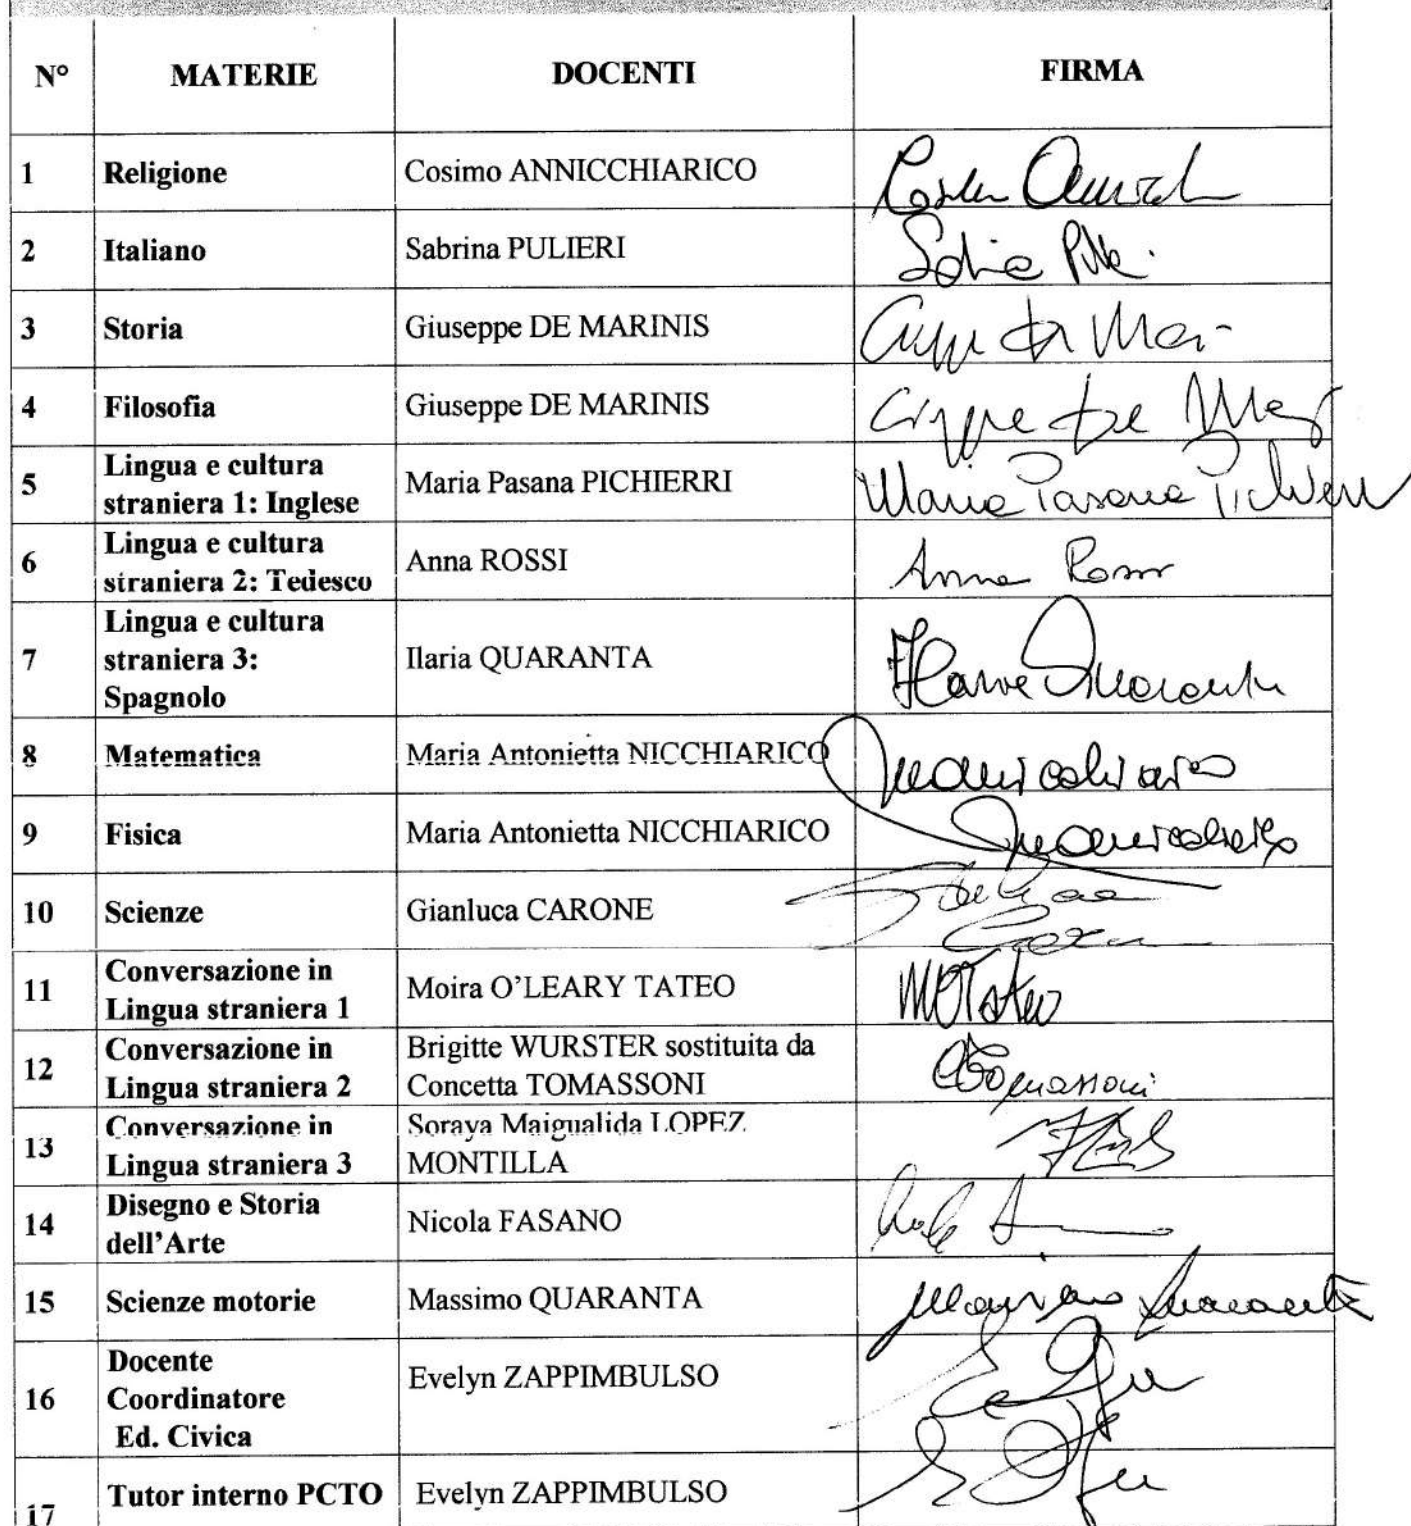 N° MATERIE DOCENTI FIRMA
1 Religione Cosimo ANNICCHIARICO
2 Italiano Sabrina PULIERI
3 Storia Giuseppe DE MARINIS
4 Filosofia Giuseppe DE MARINIS
Lingua e cultura
5 straniera 1: Inglese Maria Pasana PICHIERRI Maria Pasana Pichierri
Lingua e cultura
6 straniera 2: Tedesco Anna ROSSI Anna Rossi
Lingua e cultura
7 straniera 3: Ilaria QUARANTA Ilaria Quaranta
Spagnolo
8 Matematica Maria Antonietta NICCHIARICO
9 Fisica Maria Antonietta NICCHIARICO
10 Scienze Gianluca CARONE
Conversazione in
11 Lingua straniera 1 Moira O'LEARY TATEO
Conversazione in Brigitte WURSTER sostituita da
12 Lingua straniera 2 Concetta TOMASSONI
Conversazione in Soraya Maigualida LOPEZ
13 Lingua straniera 3 MONTILLA
Disegno e Storia
14 dell'Arte Nicola FASANO
15 Scienze motorie Massimo QUARANTA Massimo Quaranta
Docente
16 Coordinatore Evelyn ZAPPIMBULSO
Ed. Civica
17 Tutor interno PCTO Evelyn ZAPPIMBULSO